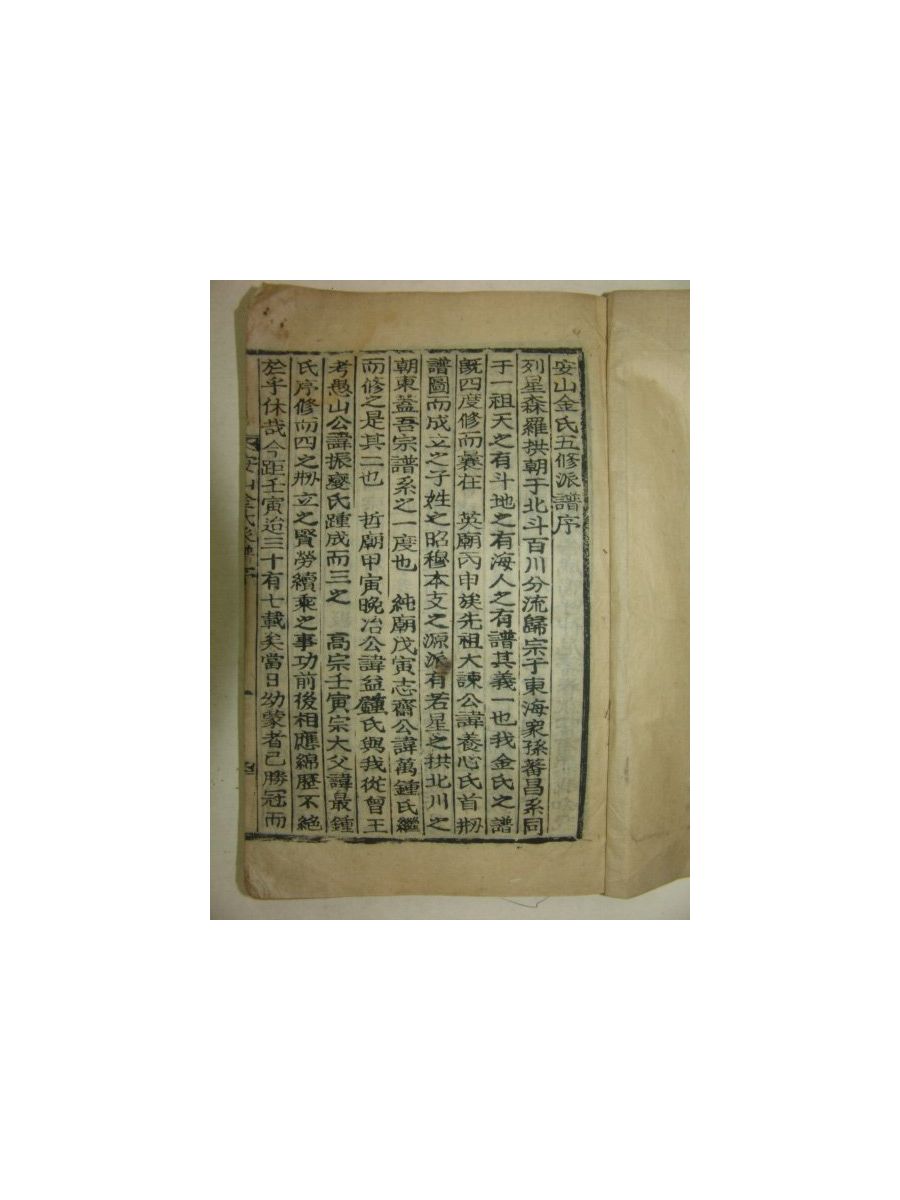 安山金氏五修派譜序
列星森羅拱朝于北斗百川分流歸宗于東海衆孫蕃昌系同
于一祖天之有斗地之有海人之有譜其義一也我金氏之譜
旣四度修而曩在 英廟丙申族先祖大諫公諱養心氏首刱
譜圖而成立之子姓之昭穆本支之源派有若星之拱北川之
朝東蓋吾宗譜系之一度也 純廟戊寅志齋公諱萬鍾氏繼
而修之是其二也 哲廟甲寅晩冶公諱益氏與我從曾王
考愚山公諱振夔氏踵成而三之 高宗壬寅宗大父諱最鍾
氏序修而四之刱立之賢勞續乘之事功前後相應綿歷不絶
於乎休哉今距壬寅迨三十有七載矣當日幼蒙者已勝冠而
安山金氏